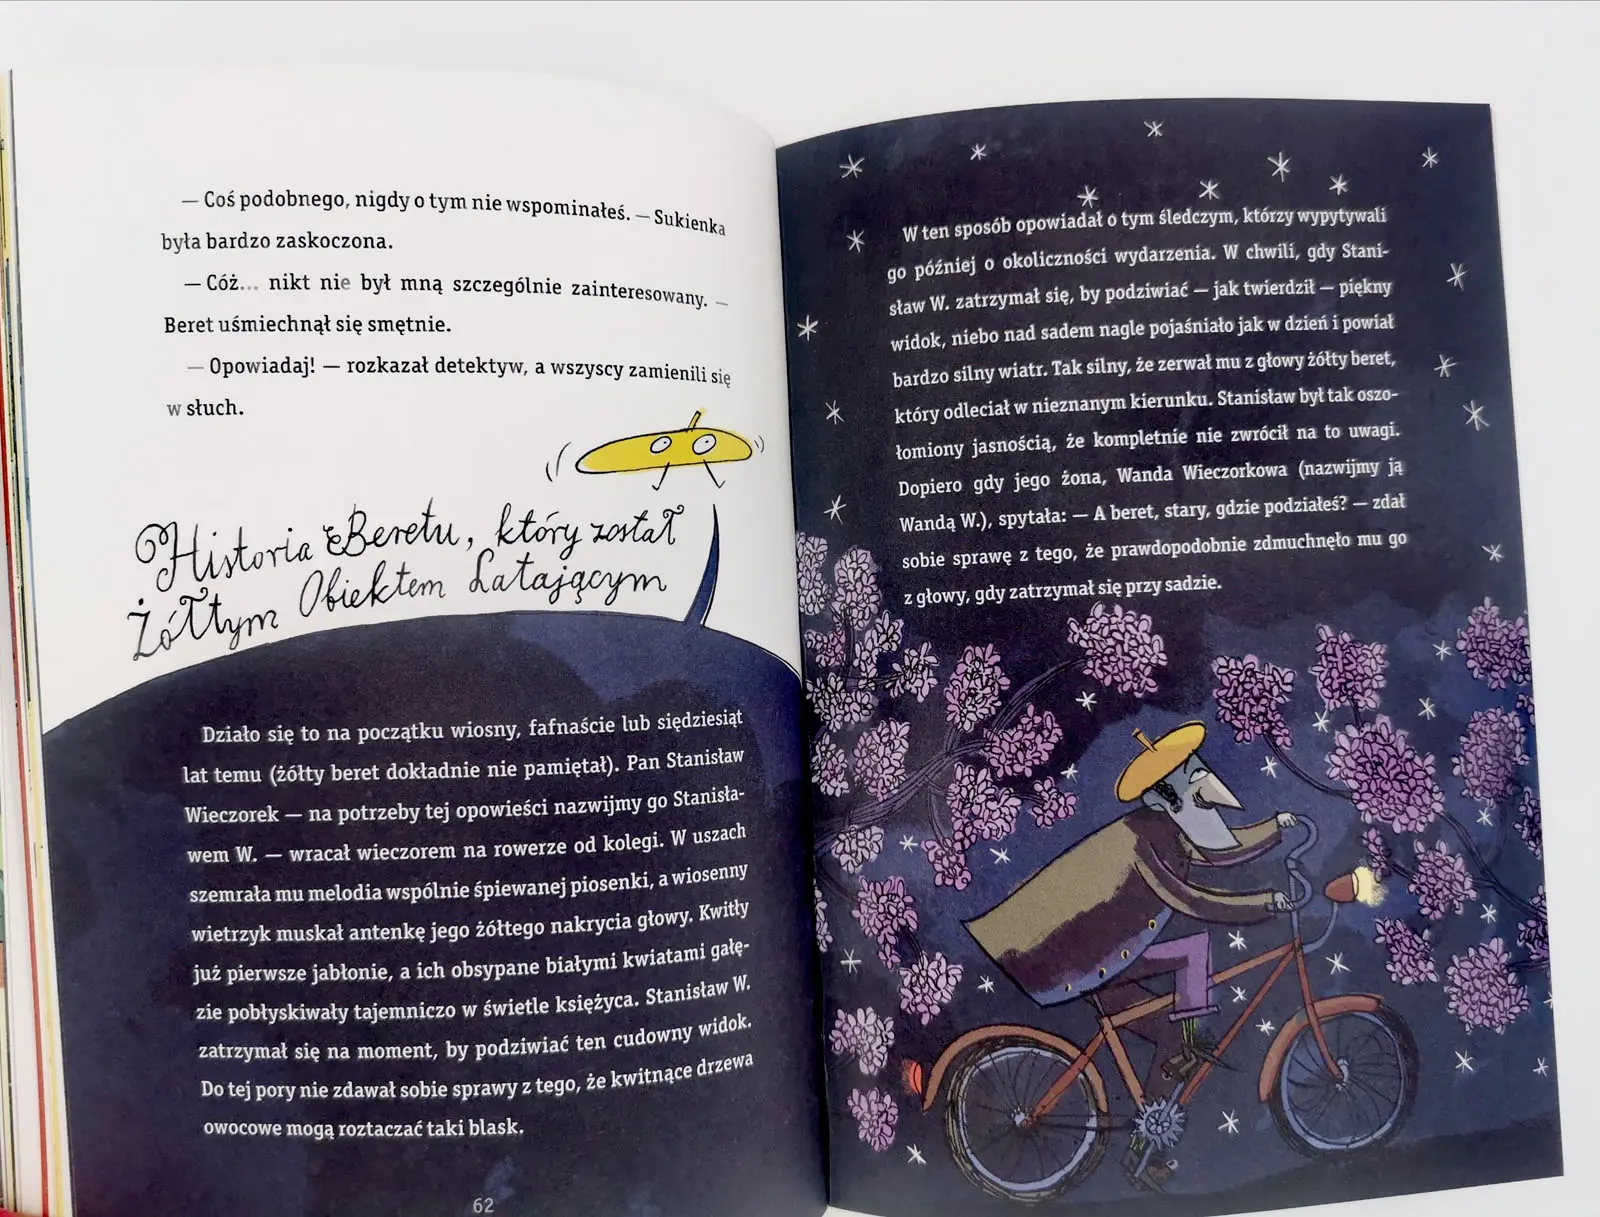 — Coś podobnego, nigdy o tym nie wspominałeś. — Sukienka
była bardzo zaskoczona.
— Cóż... nikt nie był mną szczególnie zainteresowany. —
Beret uśmiechnął się smętnie.
— Opowiadaj! — rozkazał detektyw, a wszyscy zamienili się
w słuch.
Historia Beretu, który został
Żółtym Obiektem Latającym
Działo się to na początku wiosny, fafnaście lub siędziesiąt
lat temu (żółty beret dokładnie nie pamiętał). Pan Stanisław
Wieczorek — na potrzeby tej opowieści nazwijmy go Stanisła-
wem W. — wracał wieczorem na rowerze od kolegi. W uszach
szemrała mu melodia wspólnie śpiewanej piosenki, a wiosenny
wietrzyk muskał antenkę jego żółtego nakrycia głowy. Kwitły
już pierwsze jabłonie, a ich obsypane białymi kwiatami gałę-
zie pobłyskiwały tajemniczo w świetle księżyca. Stanisław W.
zatrzymał się na moment, by podziwiać ten cudowny widok.
Do tej pory nie zdawał sobie sprawy z tego, że kwitnące drzewa
owocowe mogą roztaczać taki blask.
62
W ten sposób opowiadał o tym śledczym, którzy wypytywali
go później o okoliczności wydarzenia. W chwili, gdy Stani-
sław W. zatrzymał się, by podziwiać — jak twierdził — piękny
widok, niebo nad sadem nagle pojaśniało jak w dzień i powiał
bardzo silny wiatr. Tak silny, że zerwał mu z głowy żółty beret,
który odleciał w nieznanym kierunku. Stanisław był tak oszo-
łomiony jasnością, że kompletnie nie zwrócił na to uwagi.
Dopiero gdy jego żona, Wanda Wieczorkowa (nazwijmy ją
Wandą W.), spytała: — A beret, stary, gdzie podziałeś? — zdał
sobie sprawę z tego, że prawdopodobnie zdmuchnęło mu go
z głowy, gdy zatrzymał się przy sadzie.